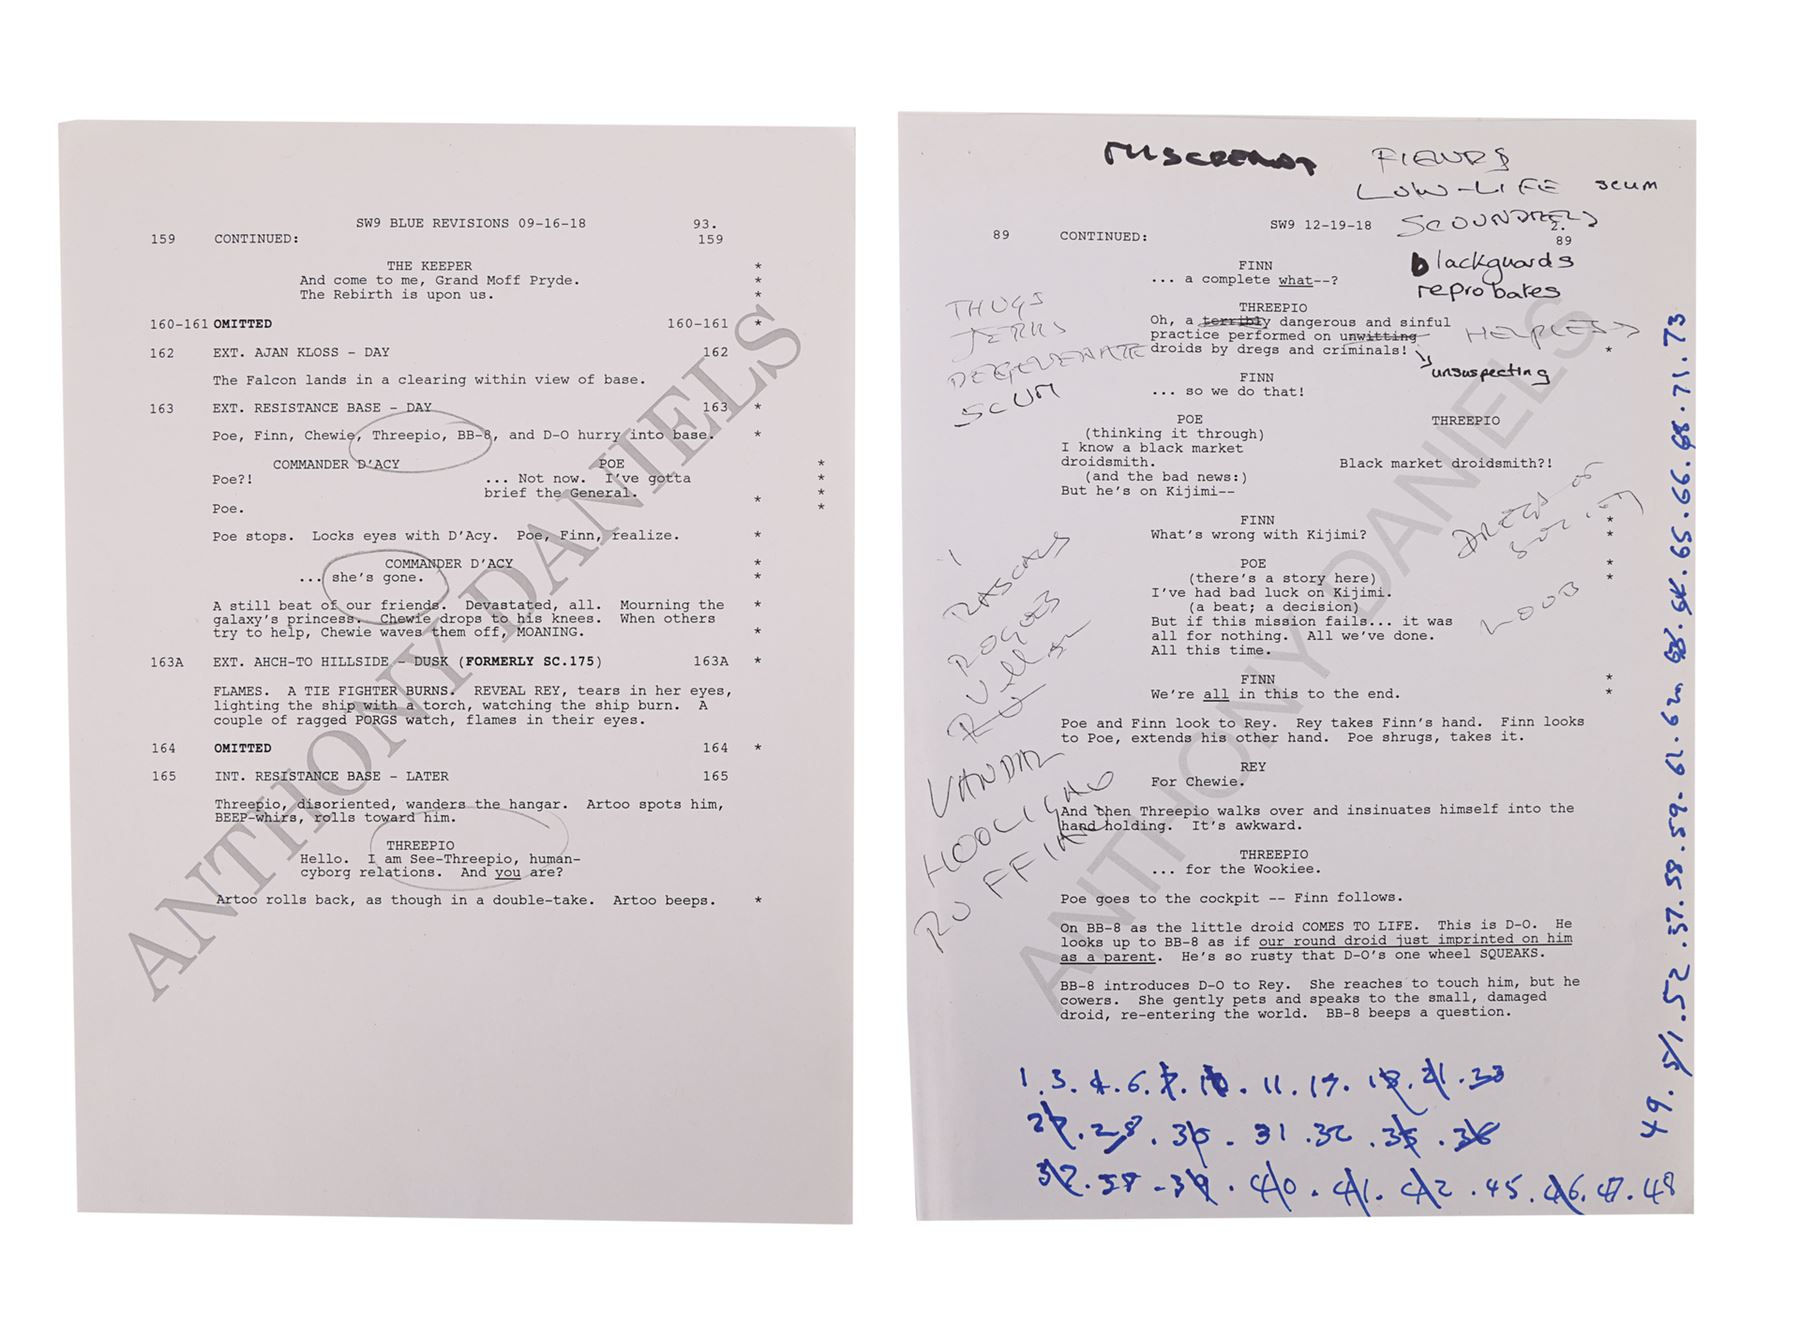 SW9 BLUE REVISIONS 09-16-18 93.
159 CONTINUED: 159
THE KEEPER *
And come to me, Grand Moff Pryde. *
The Rebirth is upon us. *
160-161 OMITTED 160-161 *
162 EXT. AJAN KLOSS - DAY 162
The Falcon lands in a clearing within view of base.
163 EXT. RESISTANCE BASE - DAY 163 *
Poe, Finn, Chewie, Threepio, BB-8, and D-O hurry into base. *
COMMANDER D'ACY POE *
Poe?! ... Not now. I've gotta *
brief the General. * *
Poe. *
Poe stops. Locks eyes with D'Acy. Poe, Finn, realize. *
COMMANDER D'ACY *
... she's gone. *
A still beat of our friends. Devastated, all. Mourning the *
galaxy's princess. Chewie drops to his knees. When others *
try to help, Chewie waves them off, MOANING. *
163A EXT. AHCH-TO HILLSIDE - DUSK (FORMERLY SC.175) 163A *
FLAMES. A TIE FIGHTER BURNS. REVEAL REY, tears in her eyes,
lighting the ship with a torch, watching the ship burn. A
couple of ragged PORGS watch, flames in their eyes.
164 OMITTED 164 *
165 INT. RESISTANCE BASE - LATER 165
Threepio, disoriented, wanders the hangar. Artoo spots him,
BEEP-whirs, rolls toward him.
THREEPIO
Hello. I am See-Threepio, human-
cyborg relations. And you are?
Artoo rolls back, as though in a double-take. Artoo beeps. *
ANTHONY DANIELS
MISCREANT FIENDS
LOW-LIFE SCUM
SCOUNDRELS
SW9 12-19-18 2.
89 CONTINUED: 89
blackguards
reprobates
FINN
... a complete what--?
THREEPIO
Oh, a terribly dangerous and sinful
practice performed on unwitting
droids by dregs and criminals! *
HELPLESS
unsuspecting
THUGS
JERKS
DEGENERATE
SCUM
FINN
... so we do that!
POE THREEPIO
(thinking it through)
I know a black market
droidsmith. Black market droidsmith?!
(and the bad news:)
But he's on Kijimi--
DREGS OF
SOCIETY
FINN *
What's wrong with Kijimi? *
POE *
(there's a story here) *
I've had bad luck on Kijimi.
(a beat; a decision)
But if this mission fails... it was
all for nothing. All we've done.
All this time.
RASCALS
ROGUES
VANDAL
HOOLIGAN
RUFFIAN
FINN *
We're all in this to the end. *
Poe and Finn look to Rey. Rey takes Finn's hand. Finn looks
to Poe, extends his other hand. Poe shrugs, takes it.
REY
For Chewie.
And then Threepio walks over and insinuates himself into the
hand holding. It's awkward.
THREEPIO
... for the Wookiee.
Poe goes to the cockpit -- Finn follows.
On BB-8 as the little droid COMES TO LIFE. This is D-O. He
looks up to BB-8 as if our round droid just imprinted on him
as a parent. He's so rusty that D-O's one wheel SQUEAKS.
BB-8 introduces D-O to Rey. She reaches to touch him, but he
cowers. She gently pets and speaks to the small, damaged
droid, re-entering the world. BB-8 beeps a question.
ANTHONY DANIELS
1. 3. 4. 6. 7. 10. 11. 17. 18. 21. 23
28. 30. 31. 32. 35. 36
39. 40. 41. 42. 45. 46. 47. 48
49. 51. 52. 57. 58. 59. 61. 62. 63. 64. 65. 66. 68. 71. 73